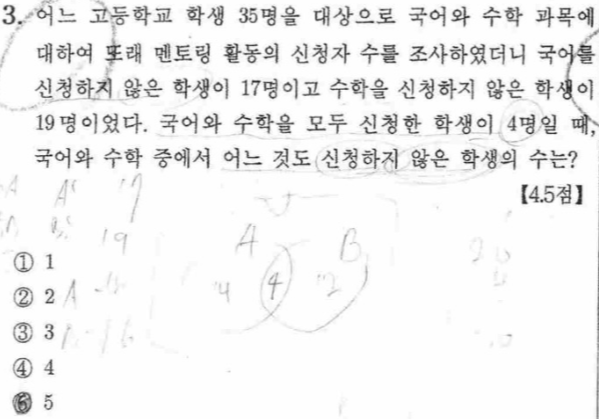 3. 어느 고등학교 학생 35명을 대상으로 국어와 수학 과목에
대하여 또래 멘토링 활동의 신청자 수를 조사하였더니 국어를
신청하지 않은 학생이 17명이고 수학을 신청하지 않은 학생이
19명이었다. 국어와 수학을 모두 신청한 학생이 4명일 때,
국어와 수학 중에서 어느 것도 신청하지 않은 학생의 수는?
【4.5점】
A A^c 17
19
A B
① 1
4
② 2
③ 3
④ 4
⑤ 5